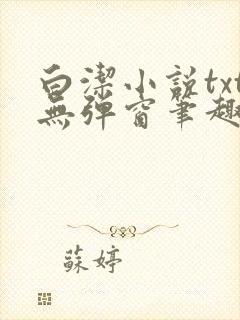 白潔小説txt
無彈窗筆趣
蘇婷